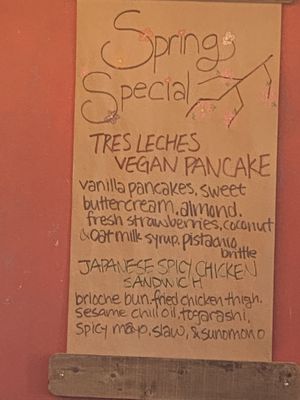 Spring
Special
TRES LECHES
VEGAN PANCAKE
vanilla pancakes, sweet
buttercream, almond,
fresh strawberries, coconut
& oat milk syrup, pistachio
brittle
JAPANESE SPICY CHICKEN
SANDWICH
brioche bun, fried chicken thigh,
sesame chili oil, togarashi,
spicy mayo, slaw, & sunomono